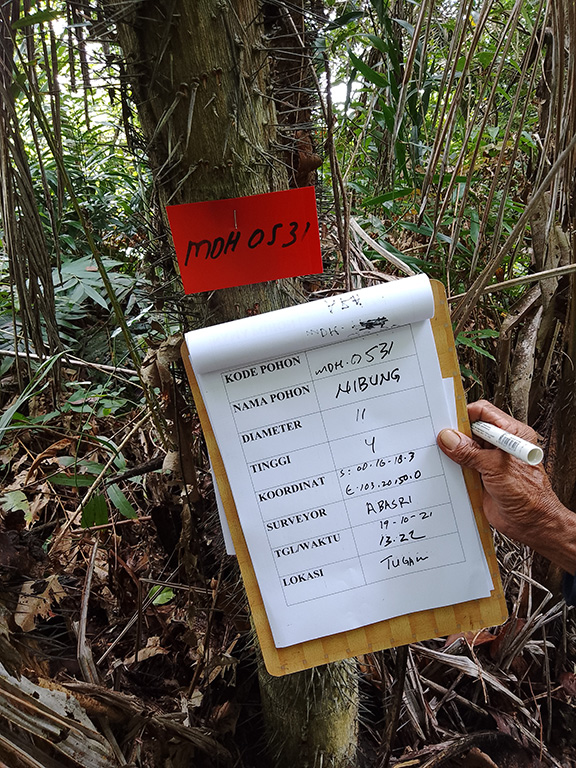 MDH 0531
KODE POHON MDH.0531
NAMA POHON NIBUNG
DIAMETER 11
TINGGI 4
KOORDINAT S: 00.16.18.3
E: 103.20.150.0
SURVEYOR ABASRI
TGL/WAKTU 19-10-21
13.22
LOKASI